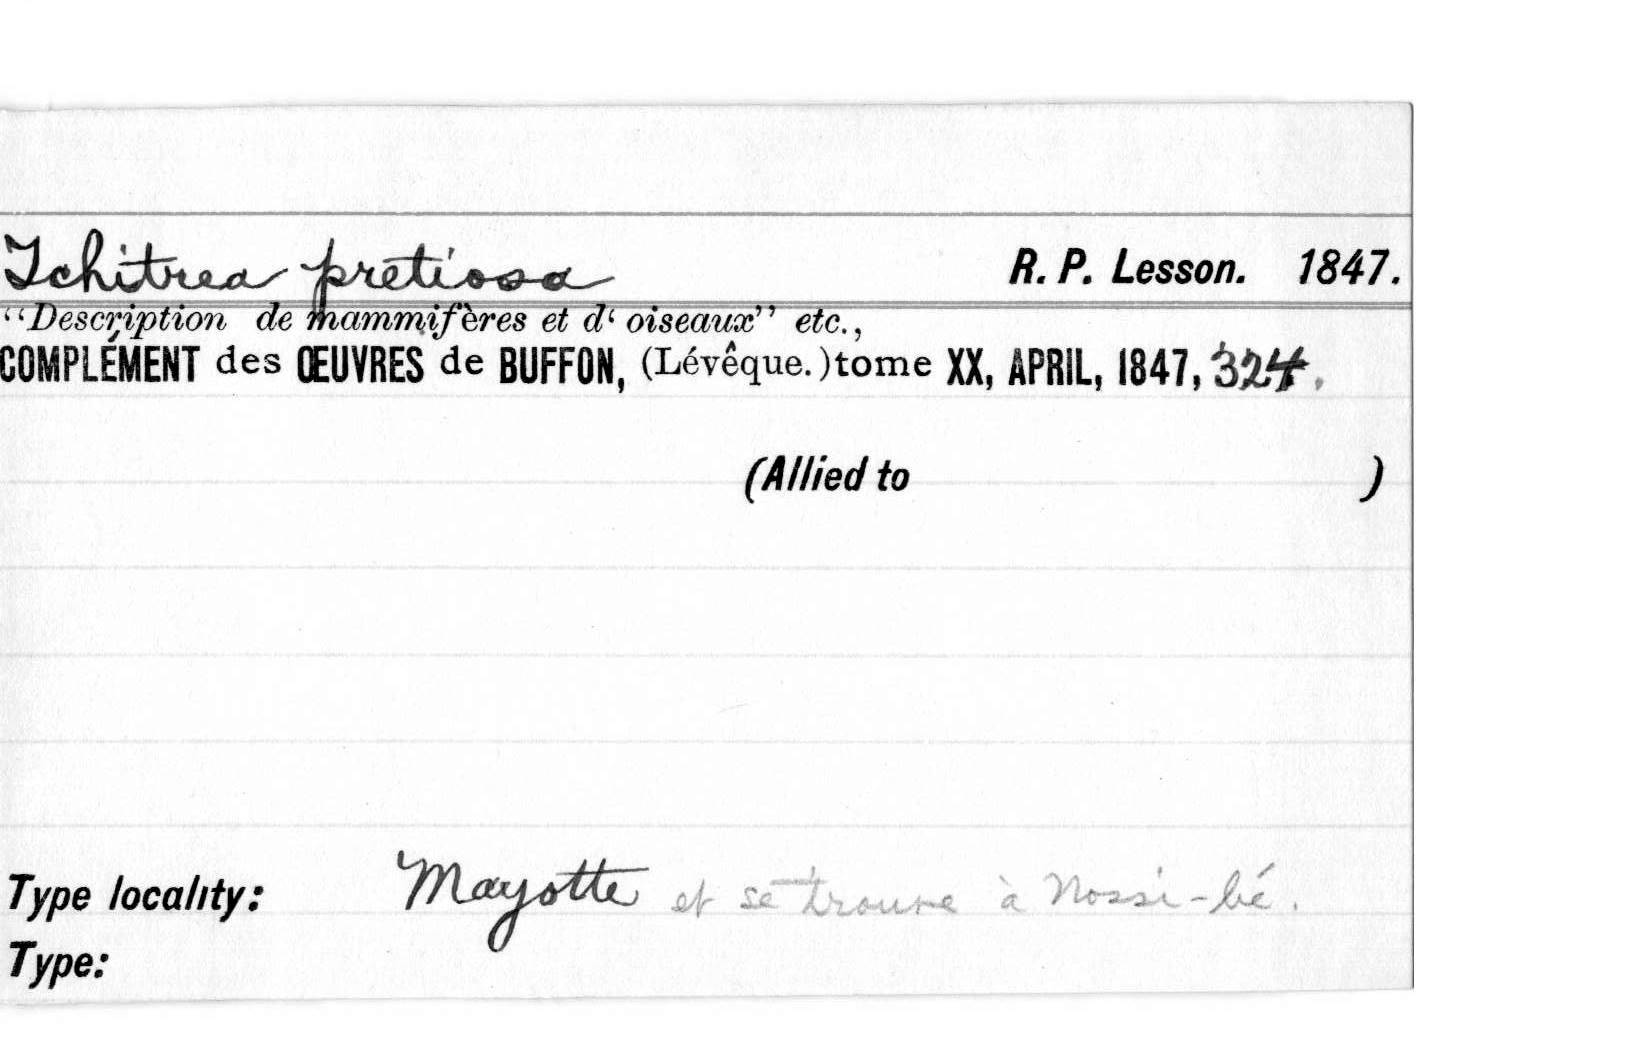 Tchitrea pretiosa R. P. Lesson. 1847.
“Description de mammifères et d‘ oiseaux” etc.,
COMPLÉMENT des ŒUVRES de BUFFON, (Lévêque.)tome XX, APRIL, 1847, 324.
(Allied to )
Type locality: Mayotte et se trouve à Nossi-bé.
Type: